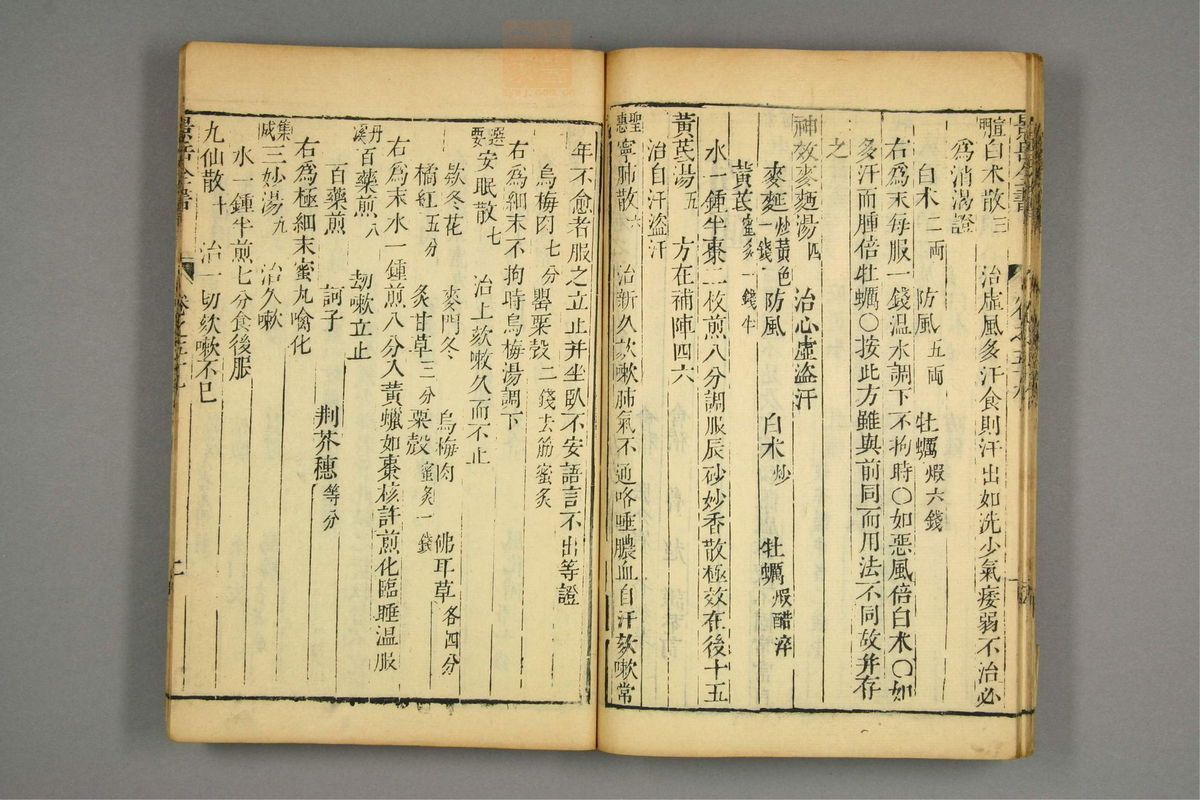 宣明白朮散三　治虛風多汗食則汗出如洗少氣痿弱不治必
為消渴證
白朮二兩　防風五兩　牡蠣煆六錢
右為末每服一錢溫水調下不拘時〇如惡風倍白朮〇如
多汗而腫倍牡蠣〇按此方雖與前同而用法不同故并存
之
神效麥麵湯四　治心虛盜汗
麥麵炒黃色一錢　防風　白朮炒　牡蠣煆醋淬
黃芪蜜炙一錢半
水一鍾半棗二枚煎八分調服辰砂妙香散極效在後十五
黃芪湯五　方在補陣四六
治自汗盜汗
聖惠寧肺散六　治新久欬嗽肺氣不通咯唾膿血自汗欬嗽常
年不愈者服之立止并坐臥不安語言不出等證
烏梅肉七分　罌粟殼二錢去筋蜜炙
右為細末不拘時烏梅湯調下
選要安眠散七　治上欬嗽久而不止
欵冬花　麥門冬　烏梅肉　佛耳草各四分
橘紅五分　炙甘草三分　粟殼蜜炙一錢
右為末水一鍾煎八分入黃蠟如棗核許煎化臨睡溫服
丹溪百藥煎八　劫嗽立止
百藥煎　訶子　荆芥穗等分
右為極細末蜜丸噙化
集成三妙湯九　治久嗽
水一鍾半煎七分食後服
九仙散十　治一切欬嗽不已
景岳全書